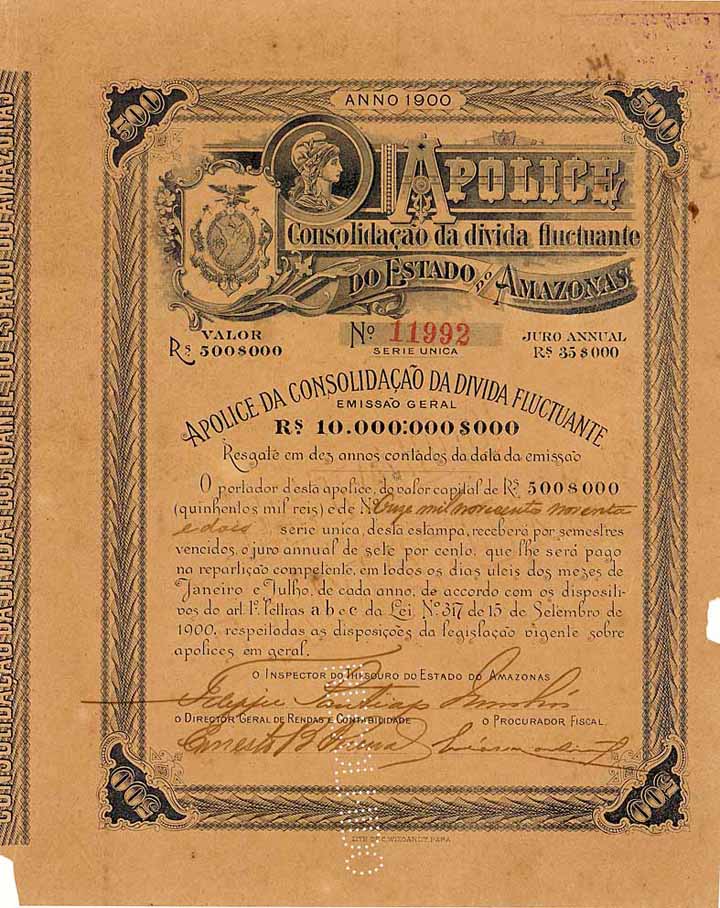 ANNO 1900
500
500
APOLICE
Consolidação da divida fluctuante
DO ESTADO DO AMAZONAS
VALOR
Rs 500$000
No 11992
SERIE UNICA
JURO ANNUAL
Rs 35$000
APOLICE DA CONSOLIDAÇÃO DA DIVIDA FLUCTUANTE
EMISSÃO GERAL
Rs 10.000:000$000
Resgate em dez annos contados da data da emissão
O portador d'esta apolice, do valor capital de Rs 500$000
(quinhentos mil reis) e de No Onze mil novecentos noventa
e dois serie unica, desta estampa, receberá por semestres
vencidos, o juro annual de sete por cento, que lhe será pago
na repartição competente, em todos os dias uteis dos mezes de
Janeiro e Julho, de cada anno, de accordo com os dispositi-
vos do art. 1º. lettras a b e c da Lei Nº 317 de 15 de Setembro de
1900, respeitadas as disposições da legislação vigente sobre
apolices em geral.
O INSPECTOR DO THESOURO DO ESTADO DO AMAZONAS
O DIRECTOR GERAL DE RENDAS E CONTABILIDADE
O PROCURADOR FISCAL.
Ernesto
500
500
LITH. DE C. WIEGANDT, PARA
CONSOLIDAÇÃO DA DIVIDA FLUCTUANTE DO ESTADO DO AMAZONAS